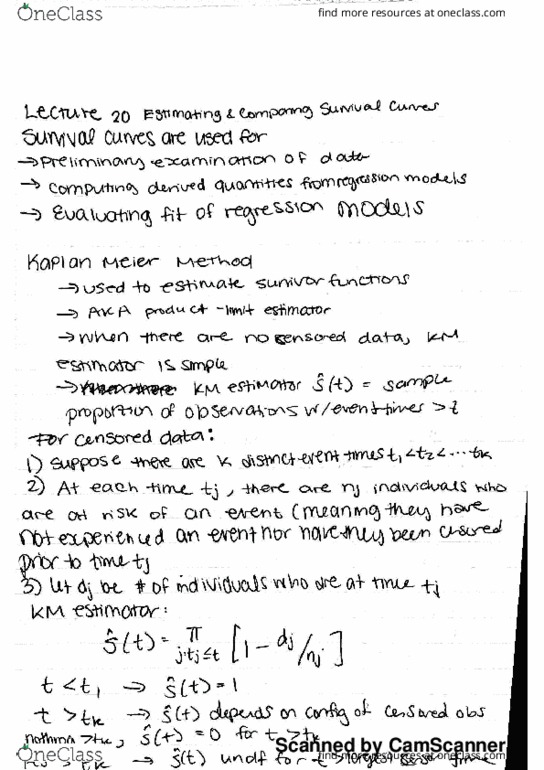 OneClass
find more resources at oneclass.com
Lecture 20 Estimating & Comparing Survival Curves
Survival curves are used for
→ Preliminary examination of data
→ Computing derived quantities from regression models
→ Evaluating fit of regression models
Kaplan Meier Method
→ used to estimate survivor functions
→ AKA product-limit estimator
→ when there are no censored data, KM
estimator is simple
→ KM estimator Ŝ(t) = sample
proportion of observations w/ event times > t
For censored data:
1) Suppose there are K distinct event times t1 < t2 < ... tk
2) At each time tj, there are nj individuals who
are at risk of an event (meaning they have
not experienced an event nor have they been censored
prior to time tj
3) let dj be # of individuals who die at time tj
KM estimator:
Ŝ(t) = π j:tj≤t [1 - dj/nj]
t < t1 → Ŝ(t) = 1
t > tk → Ŝ(t) depends on config of censored obs
nothing > tk, Ŝ(t) = 0 for t > tk
Scanned by CamScanner
OneClass
find more resources at oneclass.com
> tk → Ŝ(t) undf for t > largest